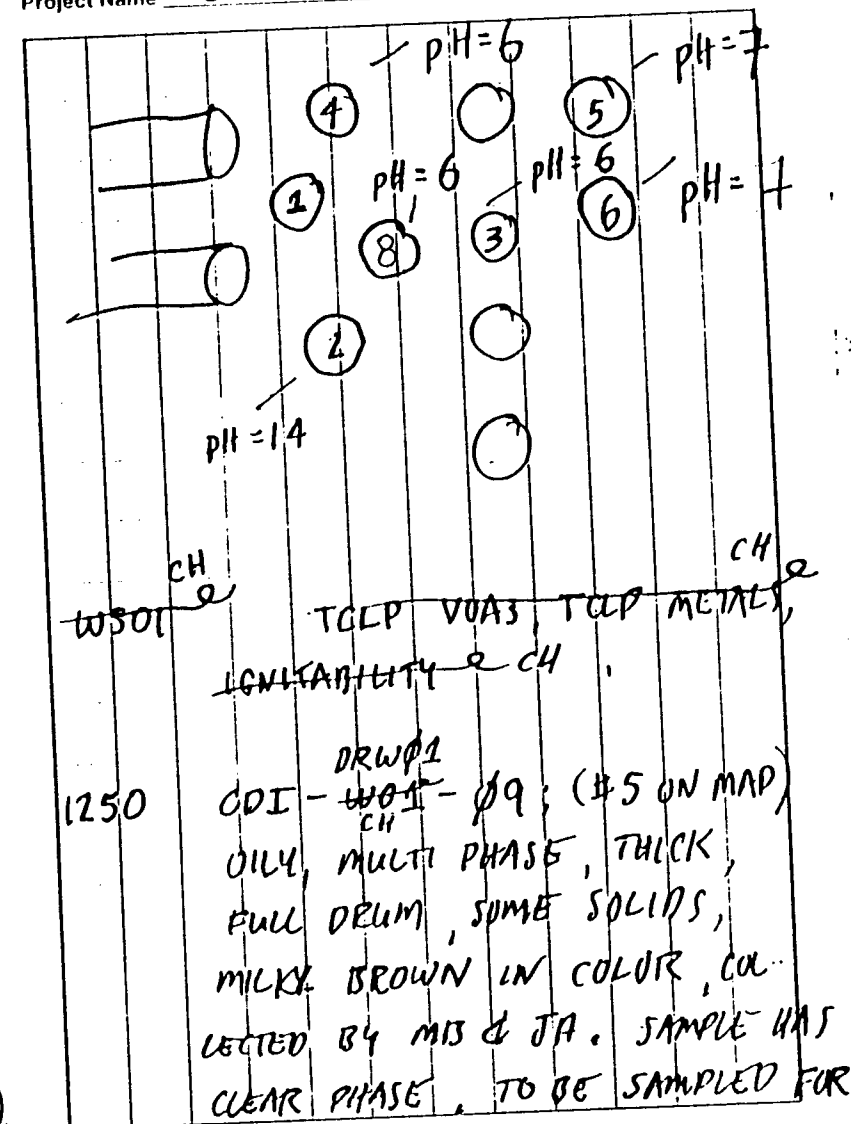 Project Name
pH=6
pH=7
4
5
pH=6
pH=6
1
6
pH=7
8
3
2
pH=14
CH
CH
WS01 TCLP VOAs, TCLP METALS,
IGNITABILITY CH
DRWØ1
1250 CDI-W01-Ø9; (#5 ON MAP)
CH
OILY, MULTI PHASE, THICK,
FULL DRUM, SOME SOLIDS,
MILKY BROWN IN COLOR, COL-
LECTED BY MB & JA. SAMPLE HAS
CLEAR PHASE, TO BE SAMPLED FOR